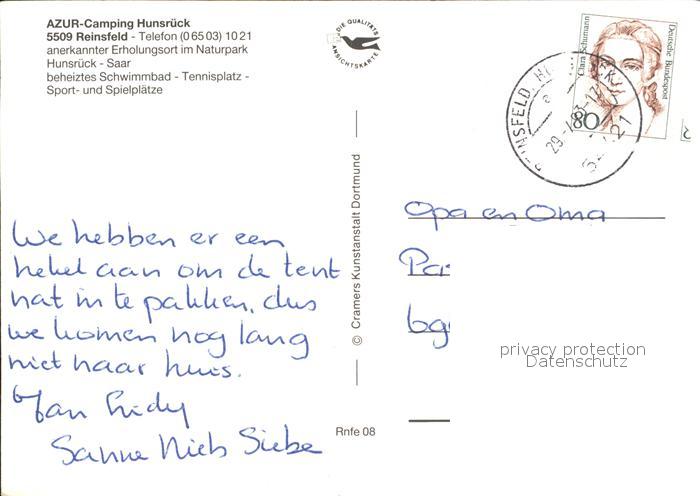 AZUR-Camping Hunsrück
5509 Reinsfeld - Telefon (0 65 03) 10 21
anerkannter Erholungsort im Naturpark
Hunsrück - Saar
beheiztes Schwimmbad - Tennisplatz -
Sport- und Spielplätze
DIE QUALITÄTS
ANSICHTSKARTE
Clara Schumann
Deutsche Bundespost
80
REINSFELD
54421
© Cramers Kunstanstalt Dortmund
We hebben er een
hekel aan om de tent
nat in te pakken, dus
we komen nog lang
niet naar huis.
Jan Lidy
Sanne Niels Siebe
Opa en Oma
Rnfe 08
privacy protection
Datenschutz